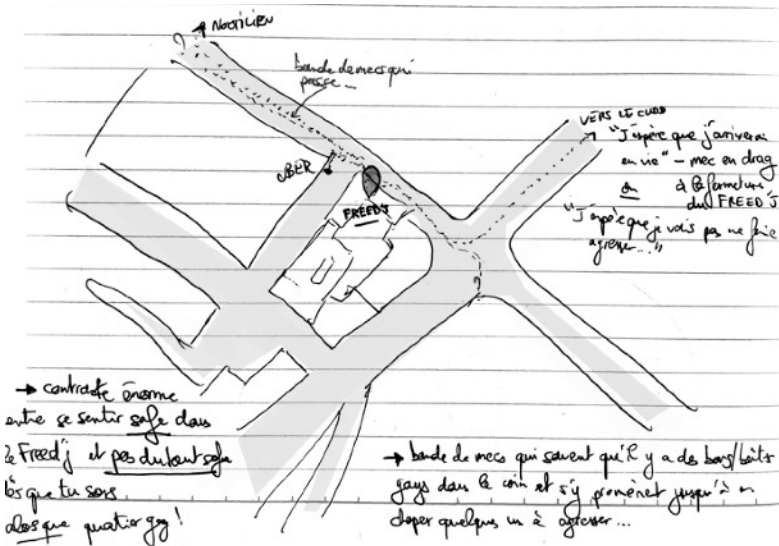 ? → NOCTILIEN
bande de mecs qui
passe...
UBER
FREEDJ
VERS LE CUD
"J'espère que j'arriverai
en vie" - mec en drag
ou à la fermeture
du FREED'J
"J'espère que je vais pas me faire
agresser..."
→ contraste énorme
entre se sentir safe dans
le Freed'j et pas du tout safe
dès que tu sors
alors que quartier gay!
→ bande de mecs qui savent qu'il y a des bars/boîtes
gays dans le coin et s'y promènent jusqu'à en
choper quelques uns à agresser...